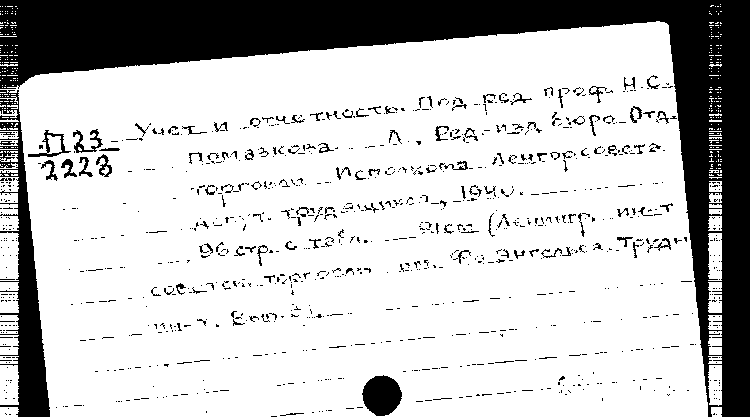 П23 Учет и отчетность. Под ред. проф. Н.С.
2223 Помазкова Л., Ред-изд. бюро Отд.
торговли Исполкома Ленгорсовета
депут. трудящихся, 1940.
96 стр. с табл. 21см (Ленингр. ин-т
советск. торговли им. Фр. Энгельса. Труды
ин-та. Вып.